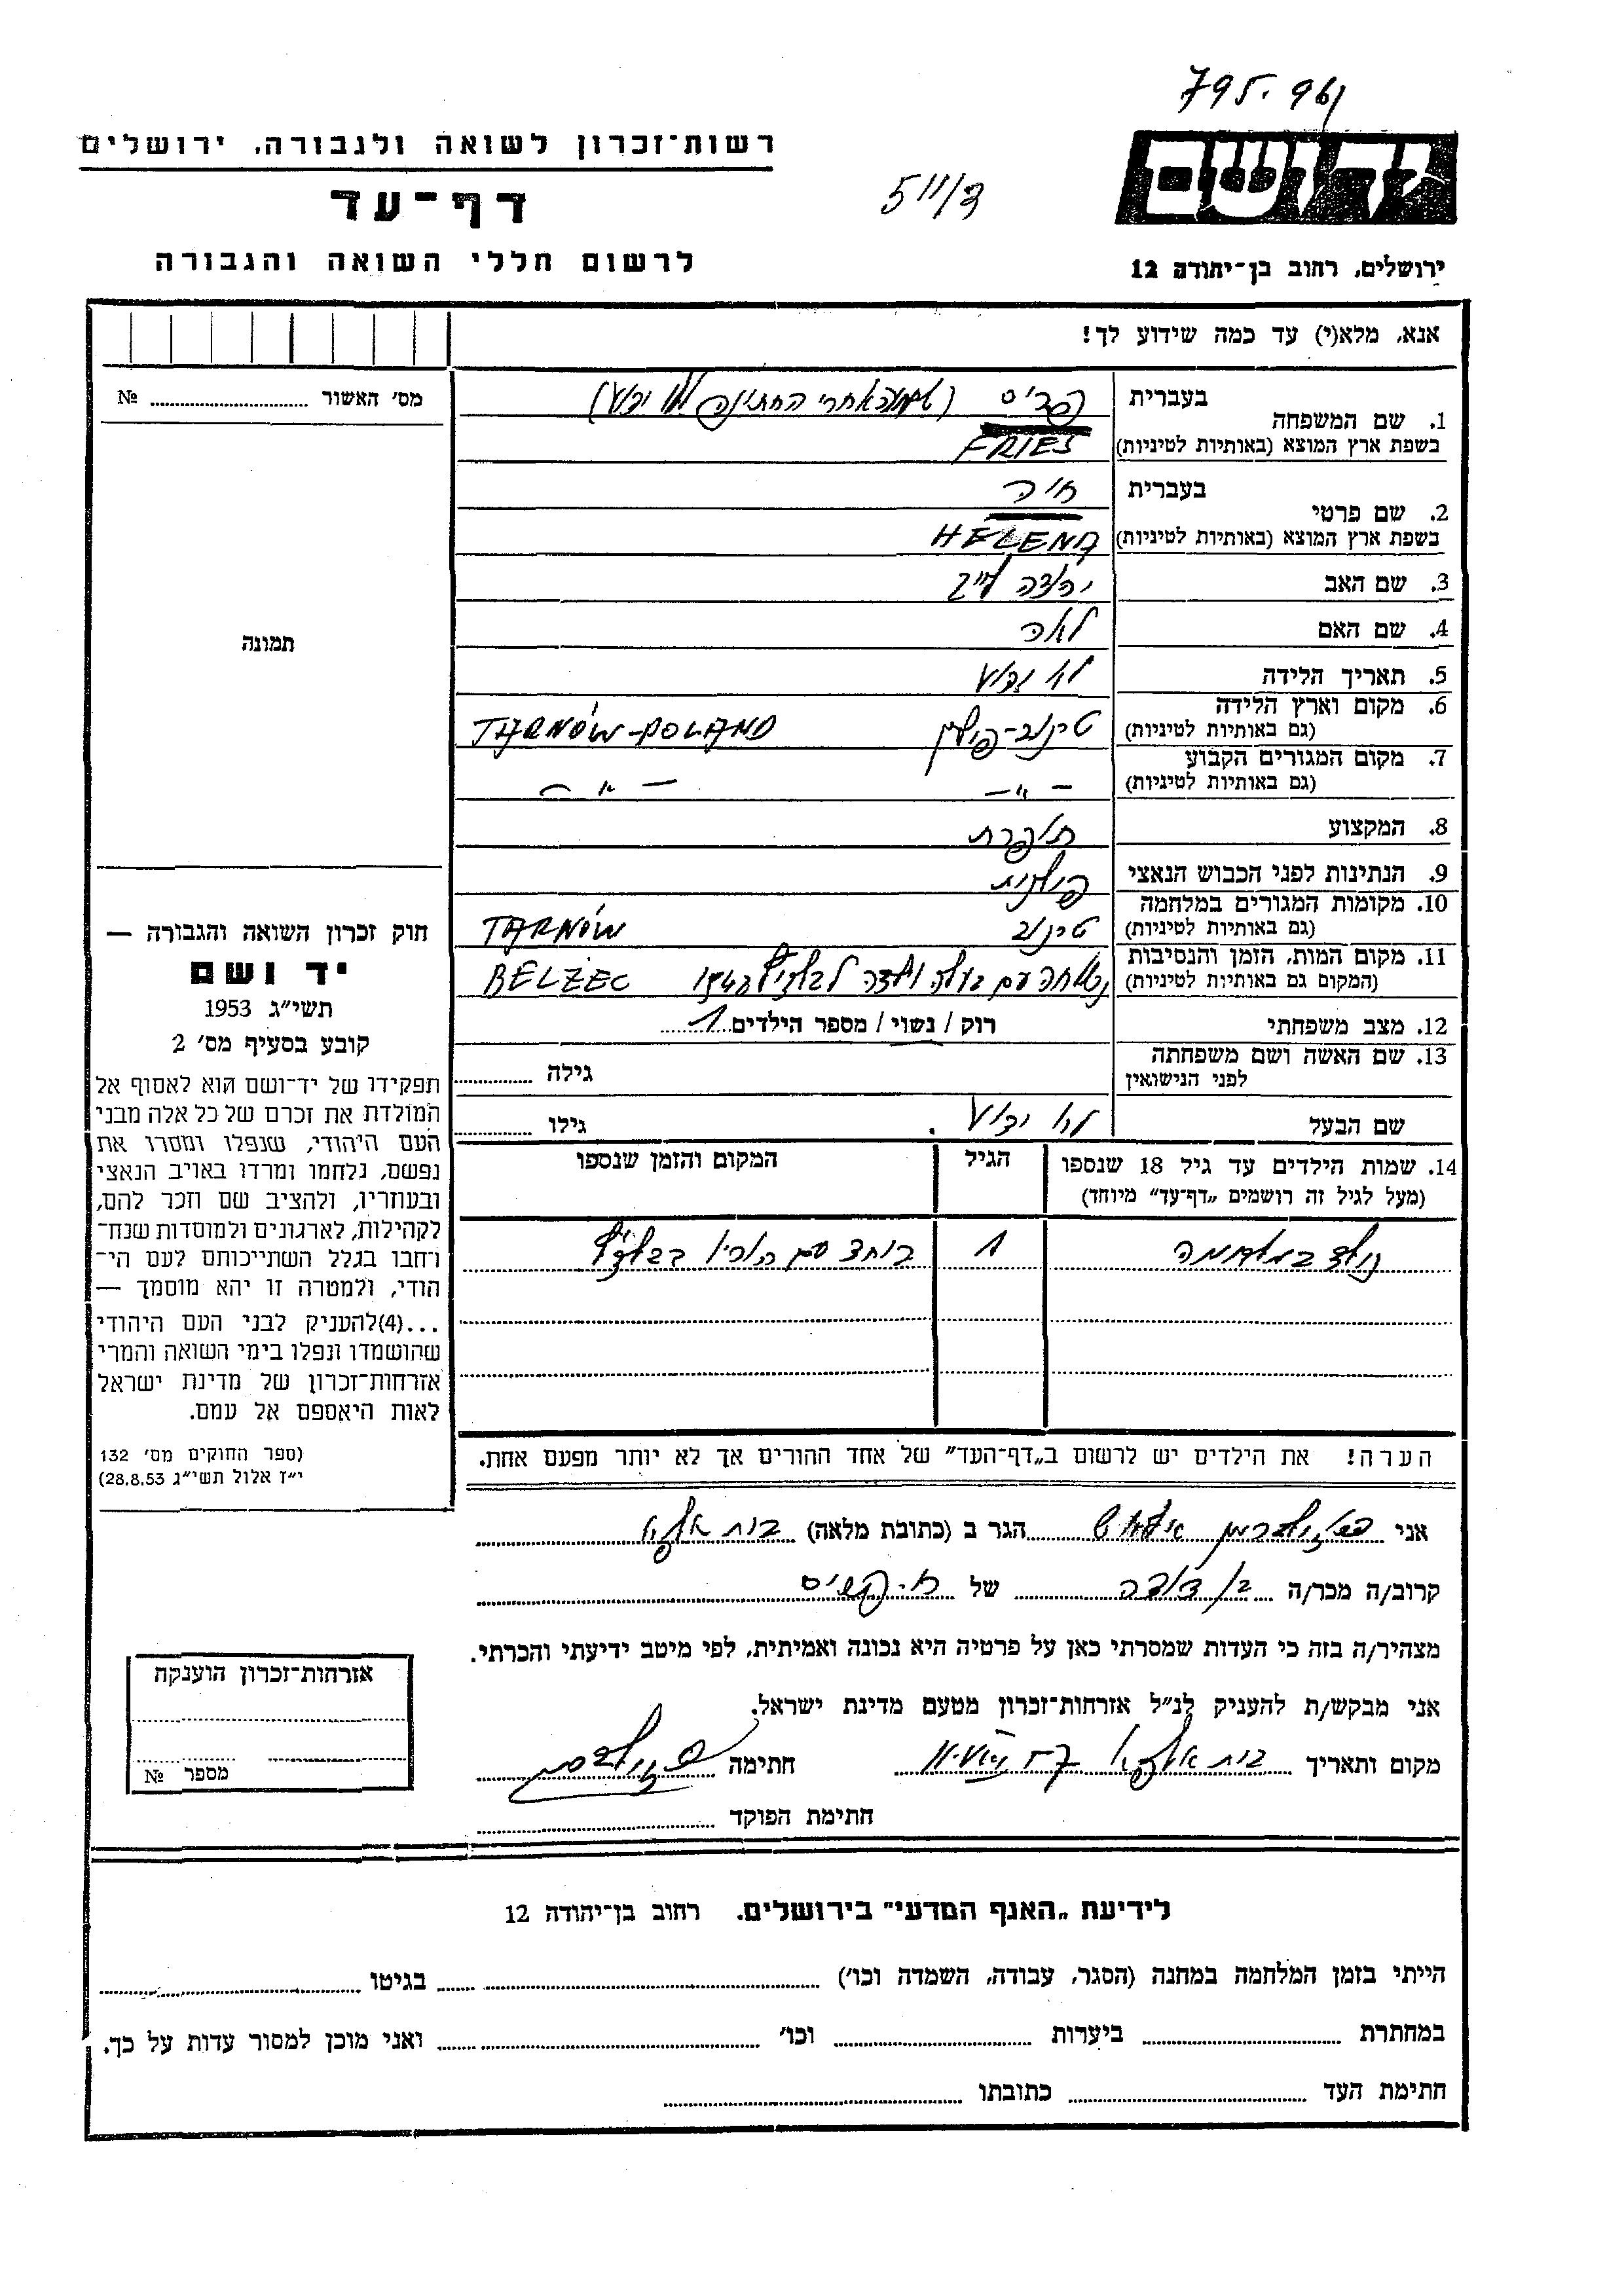 795.96/
רשות־זכרון לשואה ולגבורה. ירושלים
דף־עד
לרשום חללי השואה והגבורה
511/3
יד ושם
ירושלים, רחוב בן־יהודה 12
אנא, מלא(י) עד כמה שידוע לך!
מס׳ האשור № ........
תמונה
1. שם המשפחה
בעברית פריס (שמה אחרי החתונה לא ידוע)
בשפת ארץ המוצא (באותיות לטיניות) FRIES
2. שם פרטי
בעברית חיה
בשפת ארץ המוצא (באותיות לטיניות) HELENA
3. שם האב
4. שם האם לאה
5. תאריך הלידה לא ידוע
6. מקום וארץ הלידה
(גם באותיות לטיניות) טרנוב-פולין TARNÓW-POLAND
7. מקום המגורים הקבוע
(גם באותיות לטיניות) - " - - " -
8. המקצוע תופרת
9. הנתינות לפני הכבוש הנאצי פולנית
10. מקומות המגורים במלחמה
(גם באותיות לטיניות) טרנוב TARNÓW
11. מקום המות, הזמן והנסיבות
(המקום גם באותיות לטיניות) נשלחה עם בעלה וילדה לבלזיץ ב1942 BELZEC
12. מצב משפחתי רוק / נשוי / מספר הילדים 1
13. שם האשה ושם משפחתה
לפני הנישואין גילה ........
שם הבעל לא ידוע . גילו ........
14. שמות הילדים עד גיל 18 שנספו
(מעל לגיל זה רושמים „דף־עד” מיוחד)
הגיל
המקום והזמן שנספו
נולד במלחמה 1 ביחד עם הוריו בבלזיץ
הערה! את הילדים יש לרשום ב„דף־העד” של אחד ההורים אך לא יותר מפעם אחת.
חוק זכרון השואה והגבורה —
יד ושם
תשי״ג 1953
קובע בסעיף מס׳ 2
תפקידו של יד־ושם הוא לאסוף אל
המולדת את זכרם של כל אלה מבני
העם היהודי, שנפלו ומסרו את
נפשם, נלחמו ומרדו באויב הנאצי
ובעוזריו, ולהציב שם וזכר להם,
לקהילות, לארגונים ולמוסדות שנח־
רחבו בגלל השתייכותם לעם הי־
הודי, ולמטרה זו יהא מוסמך —
...(4)להעניק לבני העם היהודי
שהושמדו ונפלו בימי השואה והמרי
אזרחות־זכרון של מדינת ישראל
לאות היאספם אל עמם.
(ספר החוקים מס׳ 132
י״ז אלול תשי״ג 28.8.53)
אני ........ הגר ב (כתובת מלאה) בית
קרוב/ה מכר/ה בן דודה של ח. פריס
מצהיר/ה בזה כי העדות שמסרתי כאן על פרטיה היא נכונה ואמיתית, לפי מיטב ידיעתי והכרתי.
אני מבקש/ת להעניק לנ״ל אזרחות־זכרון מטעם מדינת ישראל.
מקום ותאריך בית ........ חתימה ........
חתימת הפוקד ........
אזרחות־זכרון הוענקה
מספר №
לידיעת „האגף המדעי” בירושלים. רחוב בן־יהודה 12
הייתי בזמן המלחמה במחנה (הסגר, עבודה, השמדה וכו׳) ........ בגיטו ........
במחתרת ........ ביערות ........ וכו׳ ........ ואני מוכן למסור עדות על כך.
חתימת העד ........ כתובתו ........